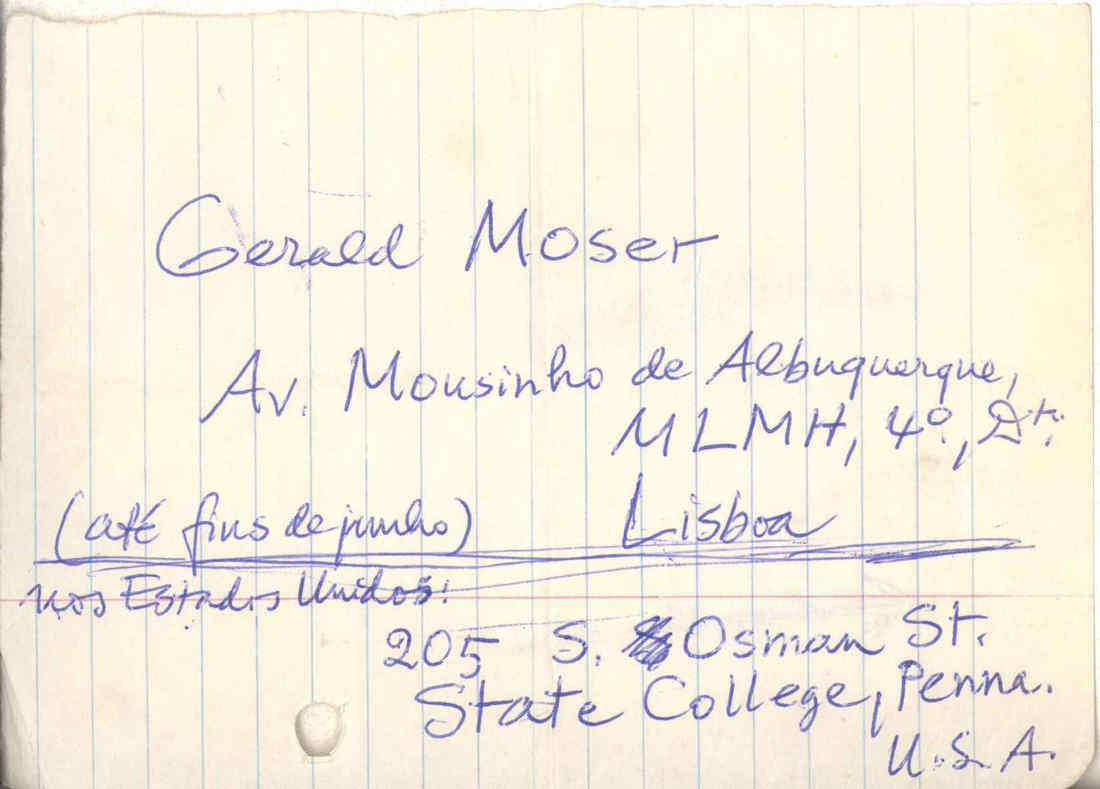 Gerald Moser
Av. Mousinho de Albuquerque,
MLMH, 4º, Dt.
(até fins de junho) Lisboa
nos Estados Unidos:
205 S. Osman St.
State College, Penna.
U.S.A.